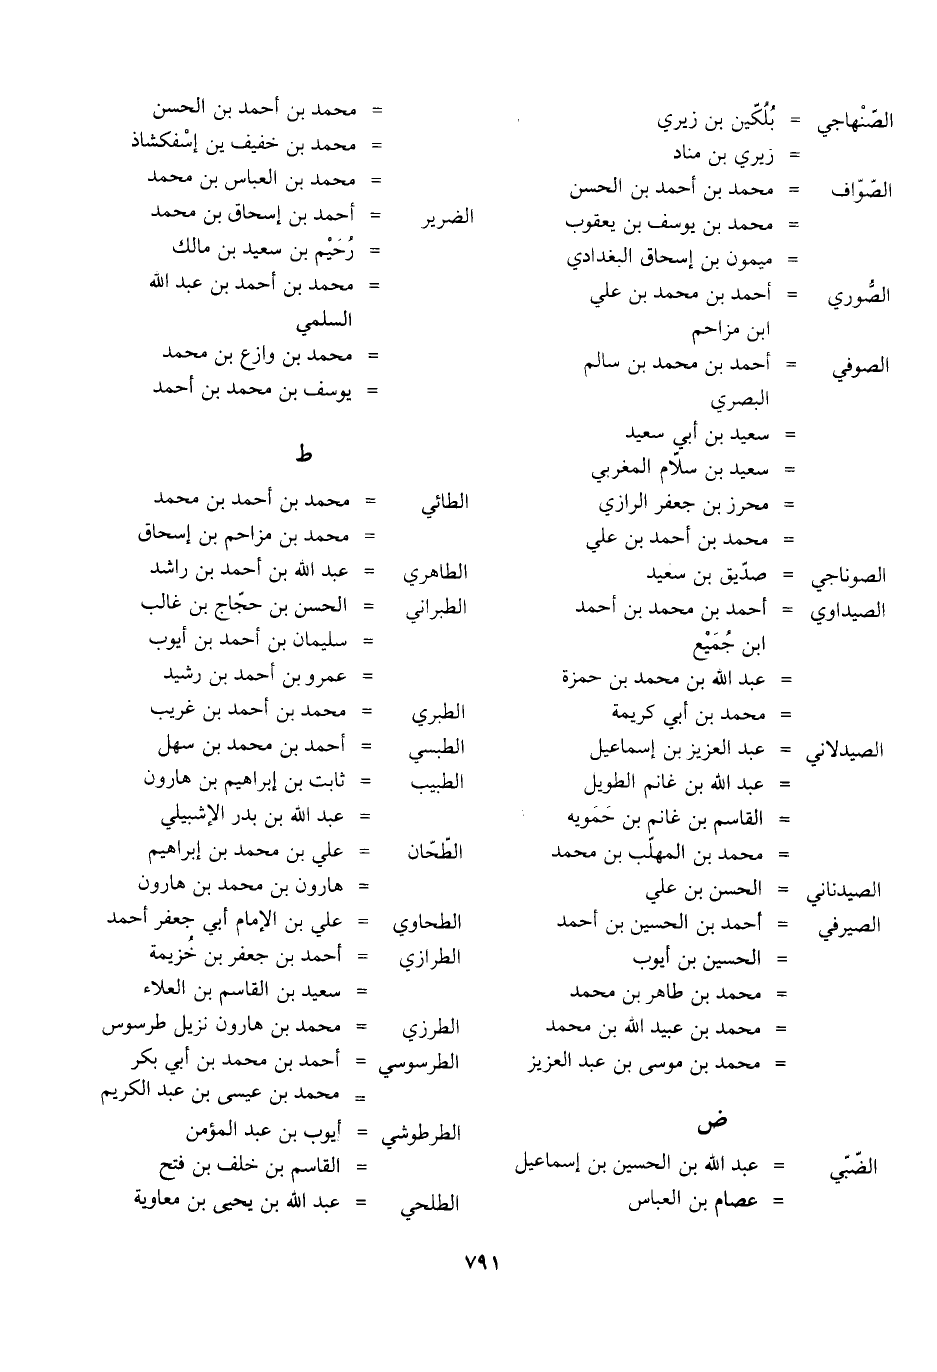 الصّنْهاجي = بُلُكّين بن زيري
= زيري بن مناد
الصّوّاف = محمد بن أحمد بن الحسن
= محمد بن يوسف بن يعقوب
= ميمون بن إسحاق البغدادي
الصُّوري = أحمد بن محمد بن علي
ابن مزاحم
الصوفي = أحمد بن محمد بن سالم
البصري
= سعيد بن أبي سعيد
= سعيد بن سلّام المغربي
= محرز بن جعفر الرازي
= محمد بن أحمد بن علي
الصوناجي = صدّيق بن سعيد
الصيداوي = أحمد بن محمد بن أحمد
ابن جُمَيْع
= عبد الله بن محمد بن حمزة
= محمد بن أبي كريمة
الصيدلاني = عبد العزيز بن إسماعيل
= عبد الله بن غانم الطويل
= القاسم بن غانم بن حَمَويه
= محمد بن المهلّب بن محمد
الصيدناني = الحسن بن علي
الصيرفي = أحمد بن الحسين بن أحمد
= الحسين بن أيوب
= محمد بن طاهر بن محمد
= محمد بن عبيد الله بن محمد
= محمد بن موسى بن عبد العزيز
ض
الضّبّي = عبد الله بن الحسين بن إسماعيل
= عصام بن العباس
= محمد بن أحمد بن الحسن
= محمد بن خفيف ين إسْفكشاذ
= محمد بن العباس بن محمد
الضرير = أحمد بن إسحاق بن محمد
= رُحَيْم بن سعيد بن مالك
= محمد بن أحمد بن عبد الله
السلمي
= محمد بن وازع بن محمد
= يوسف بن محمد بن أحمد
ط
الطائي = محمد بن أحمد بن محمد
= محمد بن مزاحم بن إسحاق
الطاهري = عبد الله بن أحمد بن راشد
الطبراني = الحسن بن حجّاج بن غالب
= سليمان بن أحمد بن أيوب
= عمرو بن أحمد بن رشيد
الطبري = محمد بن أحمد بن غريب
الطبسي = أحمد بن محمد بن سهل
الطبيب = ثابت بن إبراهيم بن هارون
= عبد الله بن بدر الإشبيلي
الطّحّان = علي بن محمد بن إبراهيم
= هارون بن محمد بن هارون
الطحاوي = علي بن الإمام أبي جعفر أحمد
الطرازي = أحمد بن جعفر بن خُزيمة
= سعيد بن القاسم بن العلاء
الطرزي = محمد بن هارون نزيل طرسوس
الطرسوسي = أحمد بن محمد بن أبي بكر
= محمد بن عيسى بن عبد الكريم
الطرطوشي = أيوب بن عبد المؤمن
= القاسم بن خلف بن فتح
الطلحي = عبد الله بن يحيى بن معاوية
٧٩١